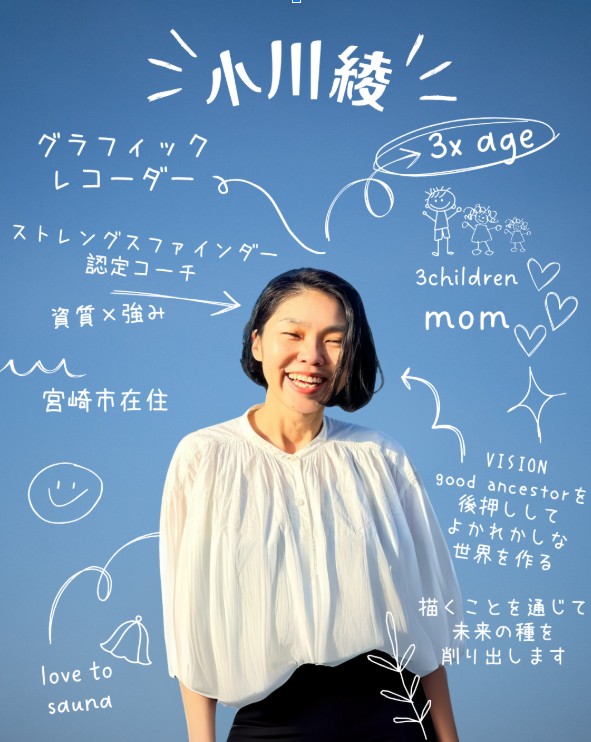 小川綾
グラフィック
レコーダー
3x age
ストレングスファインダー
認定コーチ
資質×強み
3children
mom
宮崎市在住
VISION
good ancestorを
後押しして
よかれかしな
世界を作る
描くことを通じて
未来の種を
削り出します
love to
sauna